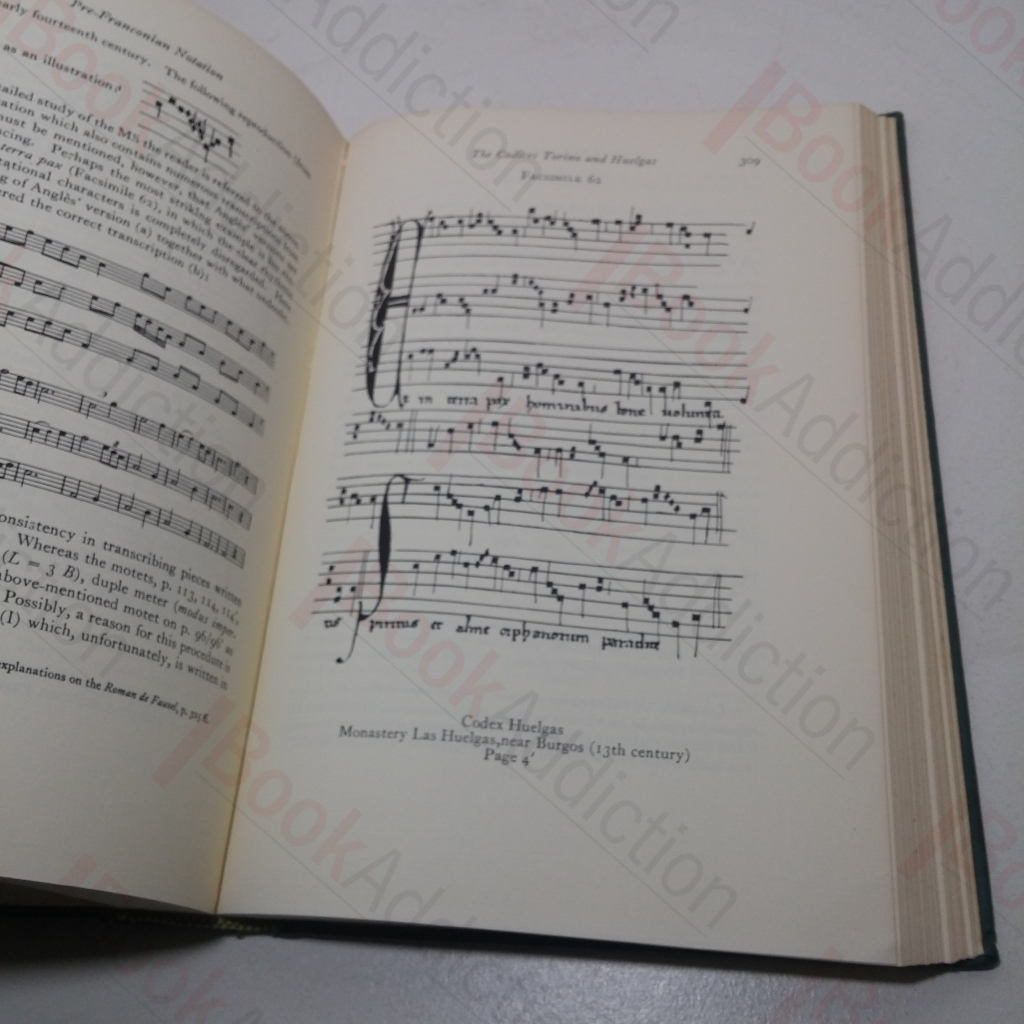 Pre-Franconian Notation
early fourteenth century. The following reproduction
as an illustration:¹
tailed study of the MS the reader is referred to the
ation which also contains numerous
must be mentioned, however, that Anglès' versions
cing. Perhaps the most striking example is the
terra pax (Facsimile 62), in which the clear
tational characters is completely disregarded.
g of Anglès' version (a) together with what
red the correct transcription (b):
onsistency in transcribing pieces written
Whereas the motets, p. 113, 114, 114',
(L = 3 B), duple meter (modus
above-mentioned motet on p. 96/96' as
Possibly, a reason for this procedure is
(I) which, unfortunately, is written in
explanations on the Roman de Fauvel, p. 325 f.
The Codices Torino and Huelgas 309
Facsimile 62
E in terra pax hominibus bone
spiritus et alme orphanorum
Codex Huelgas
Monastery Las Huelgas,near Burgos (13th century)
Page 4'
BookAddiction